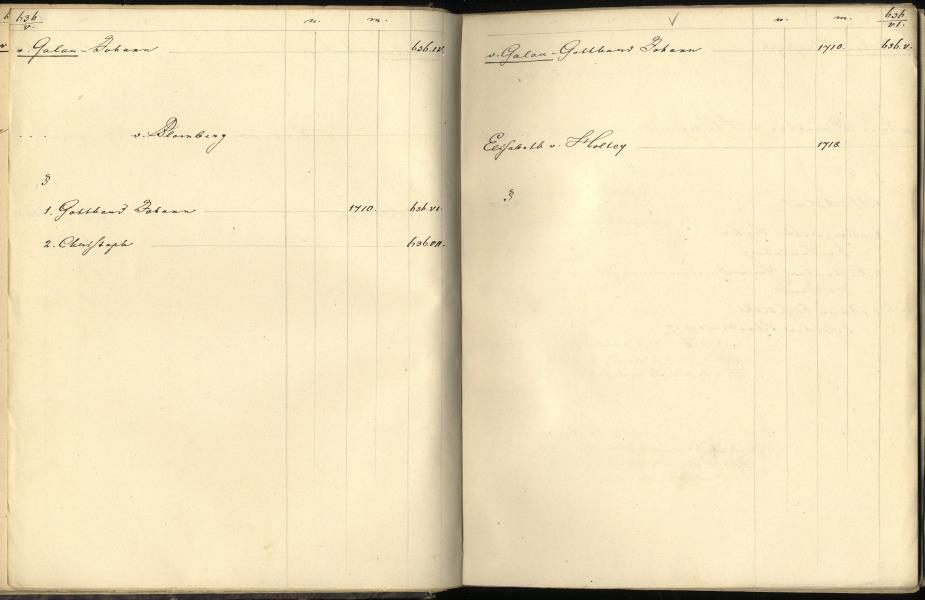 636
v.
n. m.
v. Galau - Johann 636.IV.
. . . v. Blomberg
3
1. Gotthard Johann 1710. 636.VI.
2. Christoph 636.VII.
n. m. 636
VI.
v. Galau - Gotthard Johann 1710. 636.V.
Elisabeth v. Holtey 1718.
3